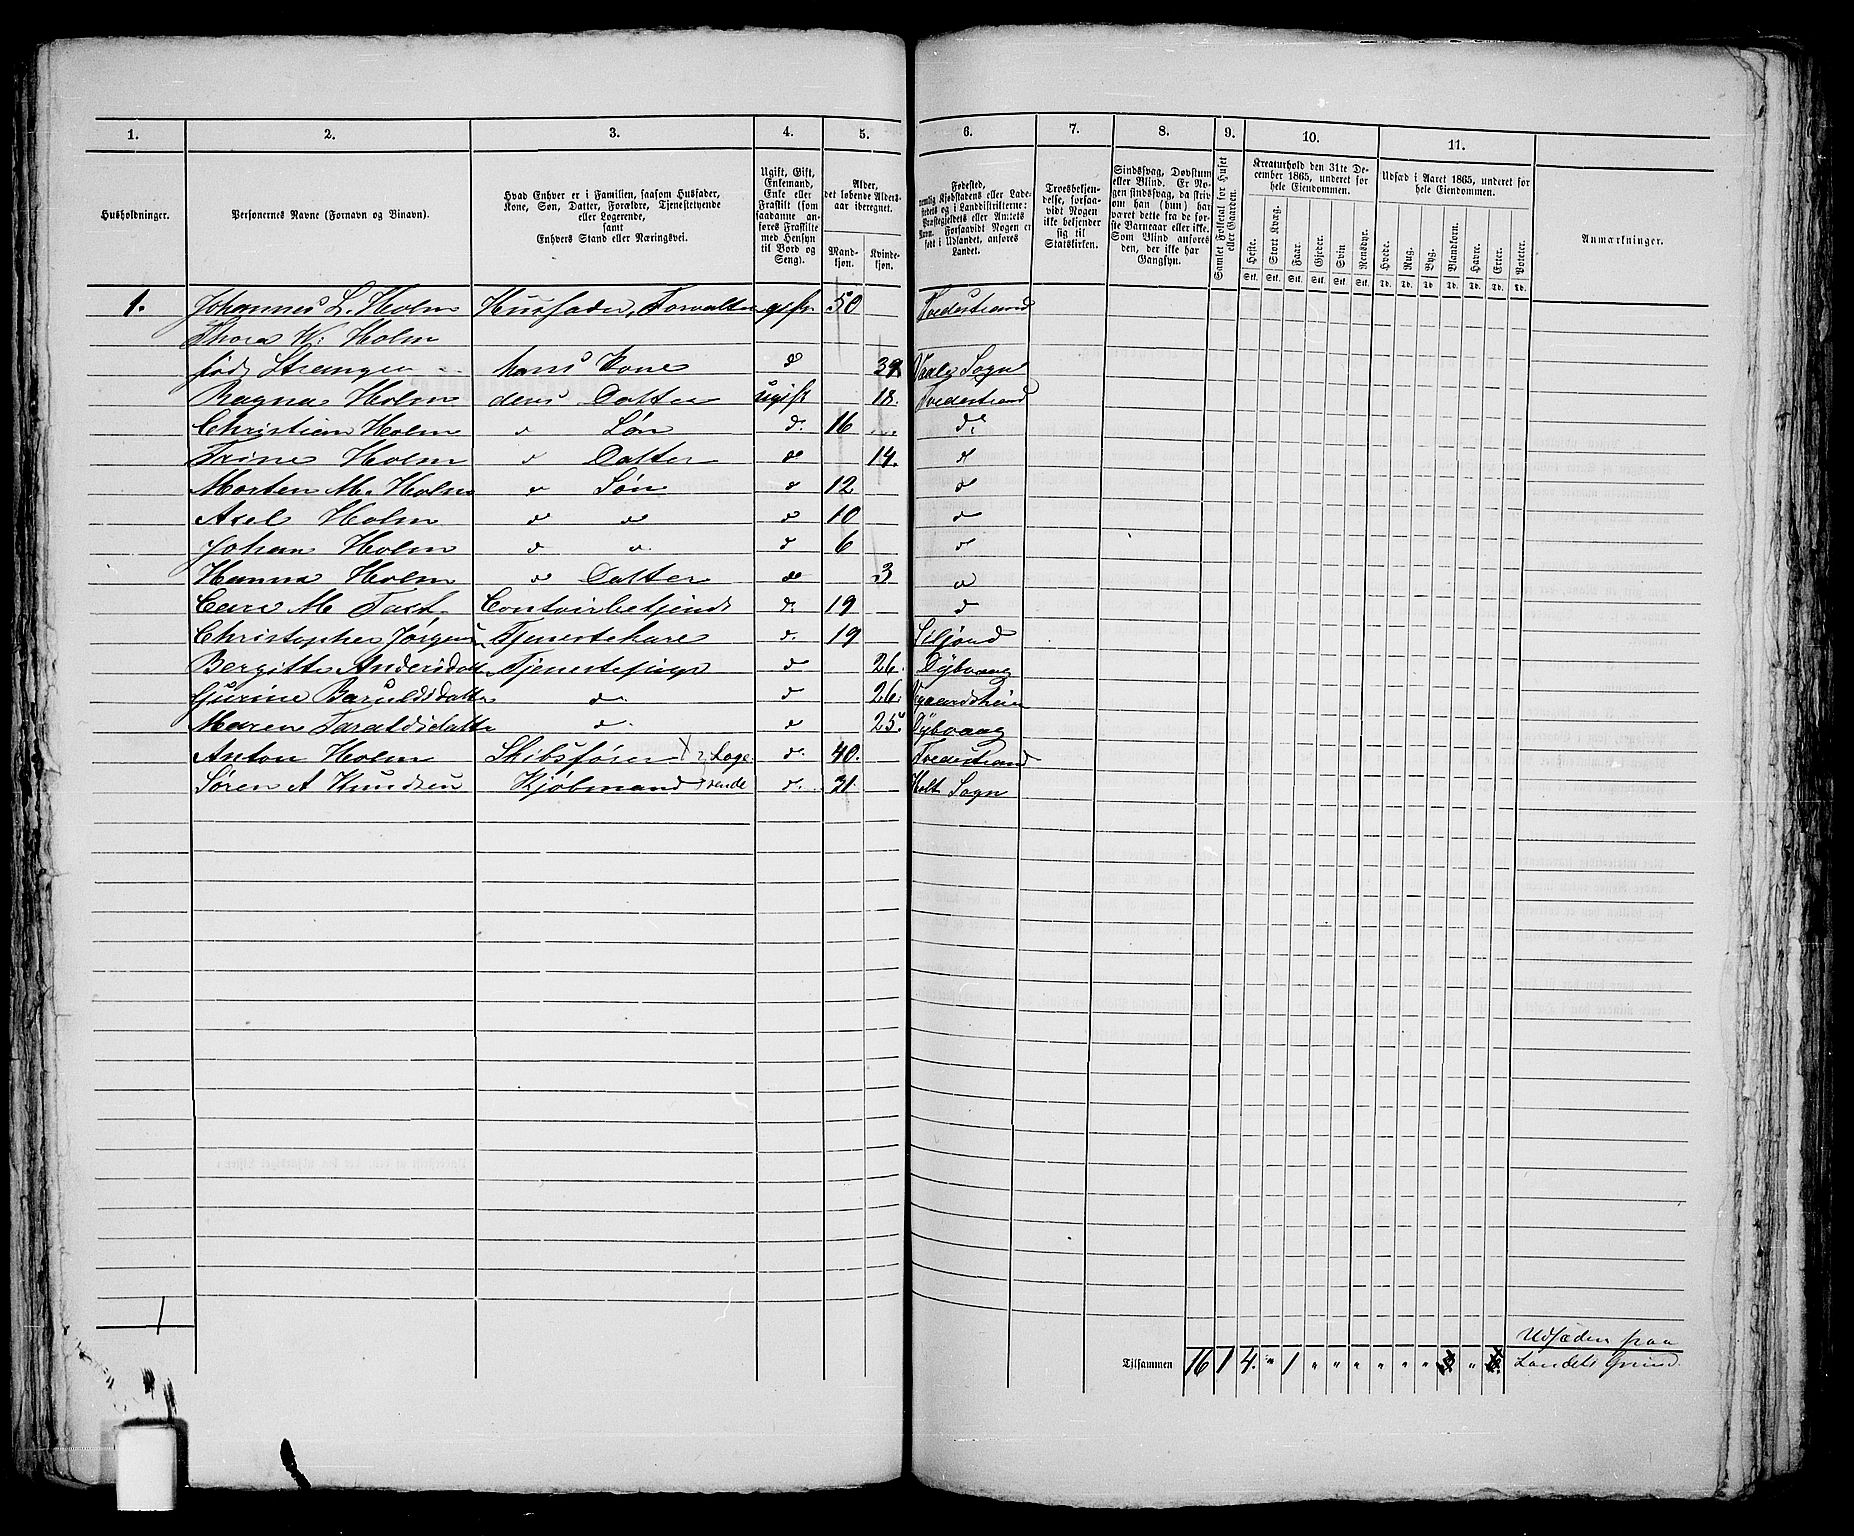 1. 2. 3. 4. 5. 6. 7. 8. 9. 10. 11.
Husholdninger.
Personernes Navne (Fornavn og Binavn).
Hvad Enhver er i Familien, saasom Husfader, Kone, Søn, Datter, Forældre, Tjenestetyende eller Logerende, samt Enhvers Stand eller Næringsvei.
Ugift, Gift, Enkemand, Enke eller Fraskilt (som saadanne anføres Fraskilte med Hensyn til Bord og Seng).
Alder, det løbende Aldersaar iberegnet.
Mandkjøn. Kvindekjøn.
Fødested, nemlig Kjøbstadens eller Ladestedets og i Landdistrikterne: Præstegjeldets eller Amtets Navn. Forsaavidt Nogen er født i Udlandet, anføres Landet.
Troesbekjendelse, forsaavidt Nogen ikke bekjender sig til Statskirken.
Sindssvag, Døvstum eller Blind. Er Nogen sindssvag, da skrives om han (hun) har været dette fra de første Barneaar eller ikke. Som Blind anføres den, der ikke har Gangsyn.
Samlet Folketal for Huset eller Gaarden.
Kreaturhold den 31te December 1865, underet for hele Eiendommen.
Heste. Stort Kvæg. Faar. Gjeder. Svin. Rensdyr.
Stk. Stk. Stk. Stk. Stk. Stk.
Udsæd i Aaret 1865, underet for hele Eiendommen.
Hvede. Rug. Byg. Blandkorn. Havre. Erter. Poteter.
Td. Td. Td. Td. Td. Td. Td.
Anmærkninger.
1. Johannes L. Holm Husfader, Forvalter gift 50 Tvedestrand
Thora W: Holm
født Stranger hans Kone d Sogn
Ragna Holm deres Datter ugift 18. Tvedestrand
Christian Holm d Søn d. 16 d.
Trine Holm d Datter d 14. d
Morten M. Holm d Søn d 12 d
Axel Holm d d d 10 d
Johan Holm d d d 6 d
Hanna Holm d Datter d 3 d
Carl M. Contoirbetjent d. 19 d
Christopher Jørgens. Tjenestekarl d. 19
Bergitte Andersdatter Tjenestepige d 26. Dybvaag
Gurine d. d 26.
Maren Taraldsdatter d. d 25. Dybvaag
Anton Holm Skibsfører Loge d. 40. Tvedestrand
Søren A Knudsen Kjøbmand rende d. 31. Holt Sogn
1
Tilsammen 16 1 4. " 1 " " " " " " "
Udsæden paa
Landets Grund